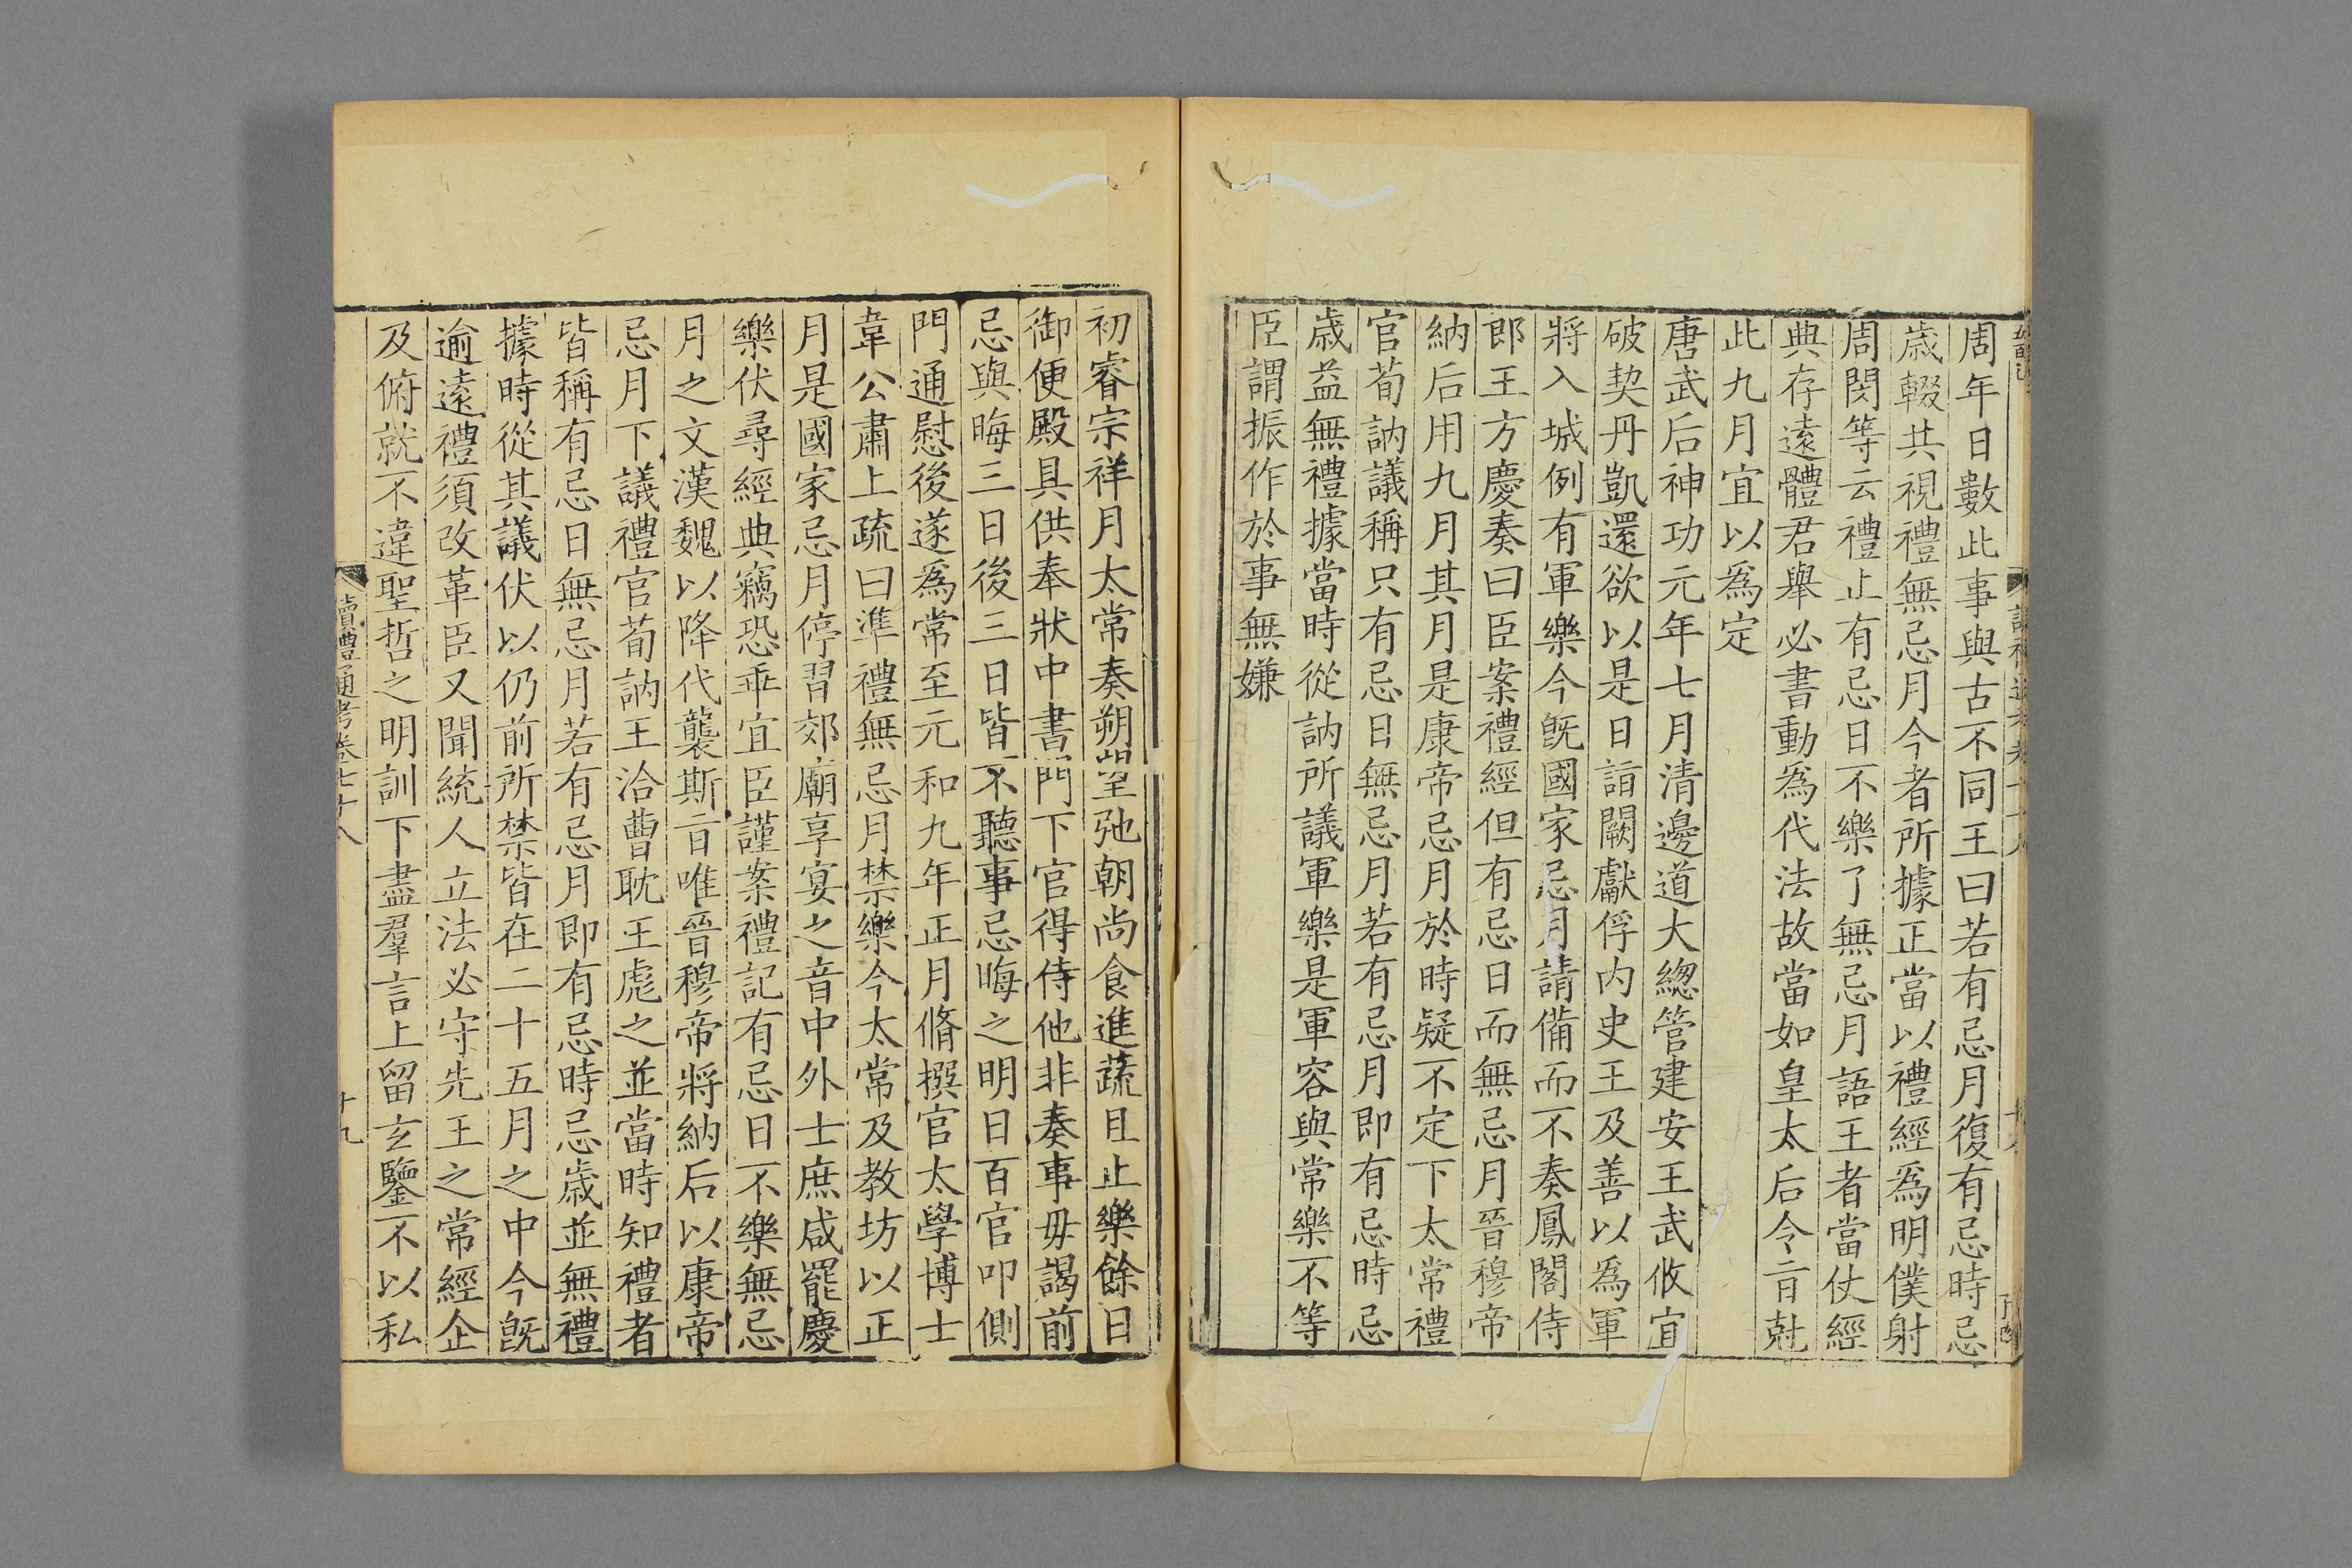 周年日數此事與古不同王曰若有忌月復有忌時忌
歲輟共視禮無忌月今者所據正當以禮經爲明僕射
周閔等云禮止有忌日不樂了無忌月語王者當仗經
典存遠體君舉必書動爲代法故當如皇太后令旨尅
此九月宜以爲定
唐武后神功元年七月清邊道大總管建安王武攸宜
破契丹凱還欲以是日詣闕獻俘内史王及善以爲軍
將入城例有軍樂今旣國家忌月請備而不奏鳳閣侍
郎王方慶奏曰臣案禮經但有忌日而無忌月晉穆帝
納后用九月其月是康帝忌月於時疑不定下太常禮
官荀訥議稱只有忌日無忌月若有忌月即有忌時忌
歲益無禮據當時從訥所議軍樂是軍容與常樂不等
臣謂振作於事無嫌
初睿宗祥月太常奏朔望弛朝尚食進蔬且止樂餘日
御便殿具供奉狀中書門下官得侍他非奏事毋謁前
忌與晦三日後三日皆不聽事忌晦之明日百官叩側
門通慰後遂爲常至元和九年正月脩撰官太學博士
韋公肅上疏曰準禮無忌月禁樂今太常及教坊以正
月是國家忌月停習郊廟享宴之音中外士庶咸罷慶
樂伏尋經典竊恐乖宜臣謹案禮記有忌日不樂無忌
月之文漢魏以降代襲斯旨唯晉穆帝將納后以康帝
忌月下議禮官荀訥王洽曹耽王彪之並當時知禮者
皆稱有忌日無忌月若有忌月即有忌時忌歲並無禮
據時從其議伏以仍前所禁皆在二十五月之中今旣
逾遠禮須改革臣又聞統人立法必守先王之常經企
及俯就不違聖哲之明訓下盡羣言上留玄鑒不以私
讀禮通考卷七十八
十九